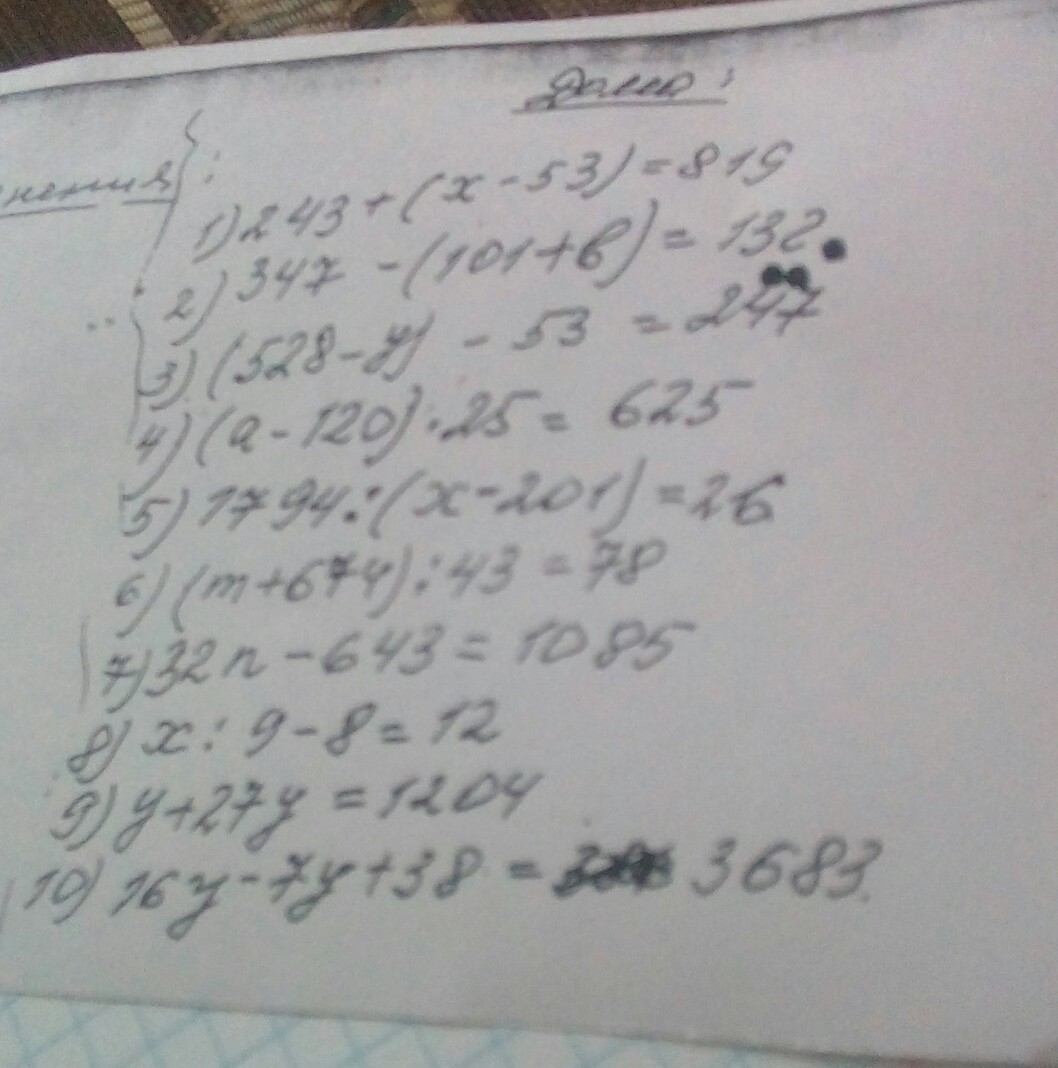 Дано:
нения:
1) 243 + (x - 53) = 819
2) 347 - (101 + в) = 132.
3) (528 - y) - 53 = 247
4) (a - 120) · 25 = 625
5) 1794 : (x - 201) = 26
6) (m + 674) : 43 = 78
7) 32n - 643 = 1085
8) x : 9 - 8 = 12
9) y + 27y = 1204
10) 16y - 7y + 38 = 3683.